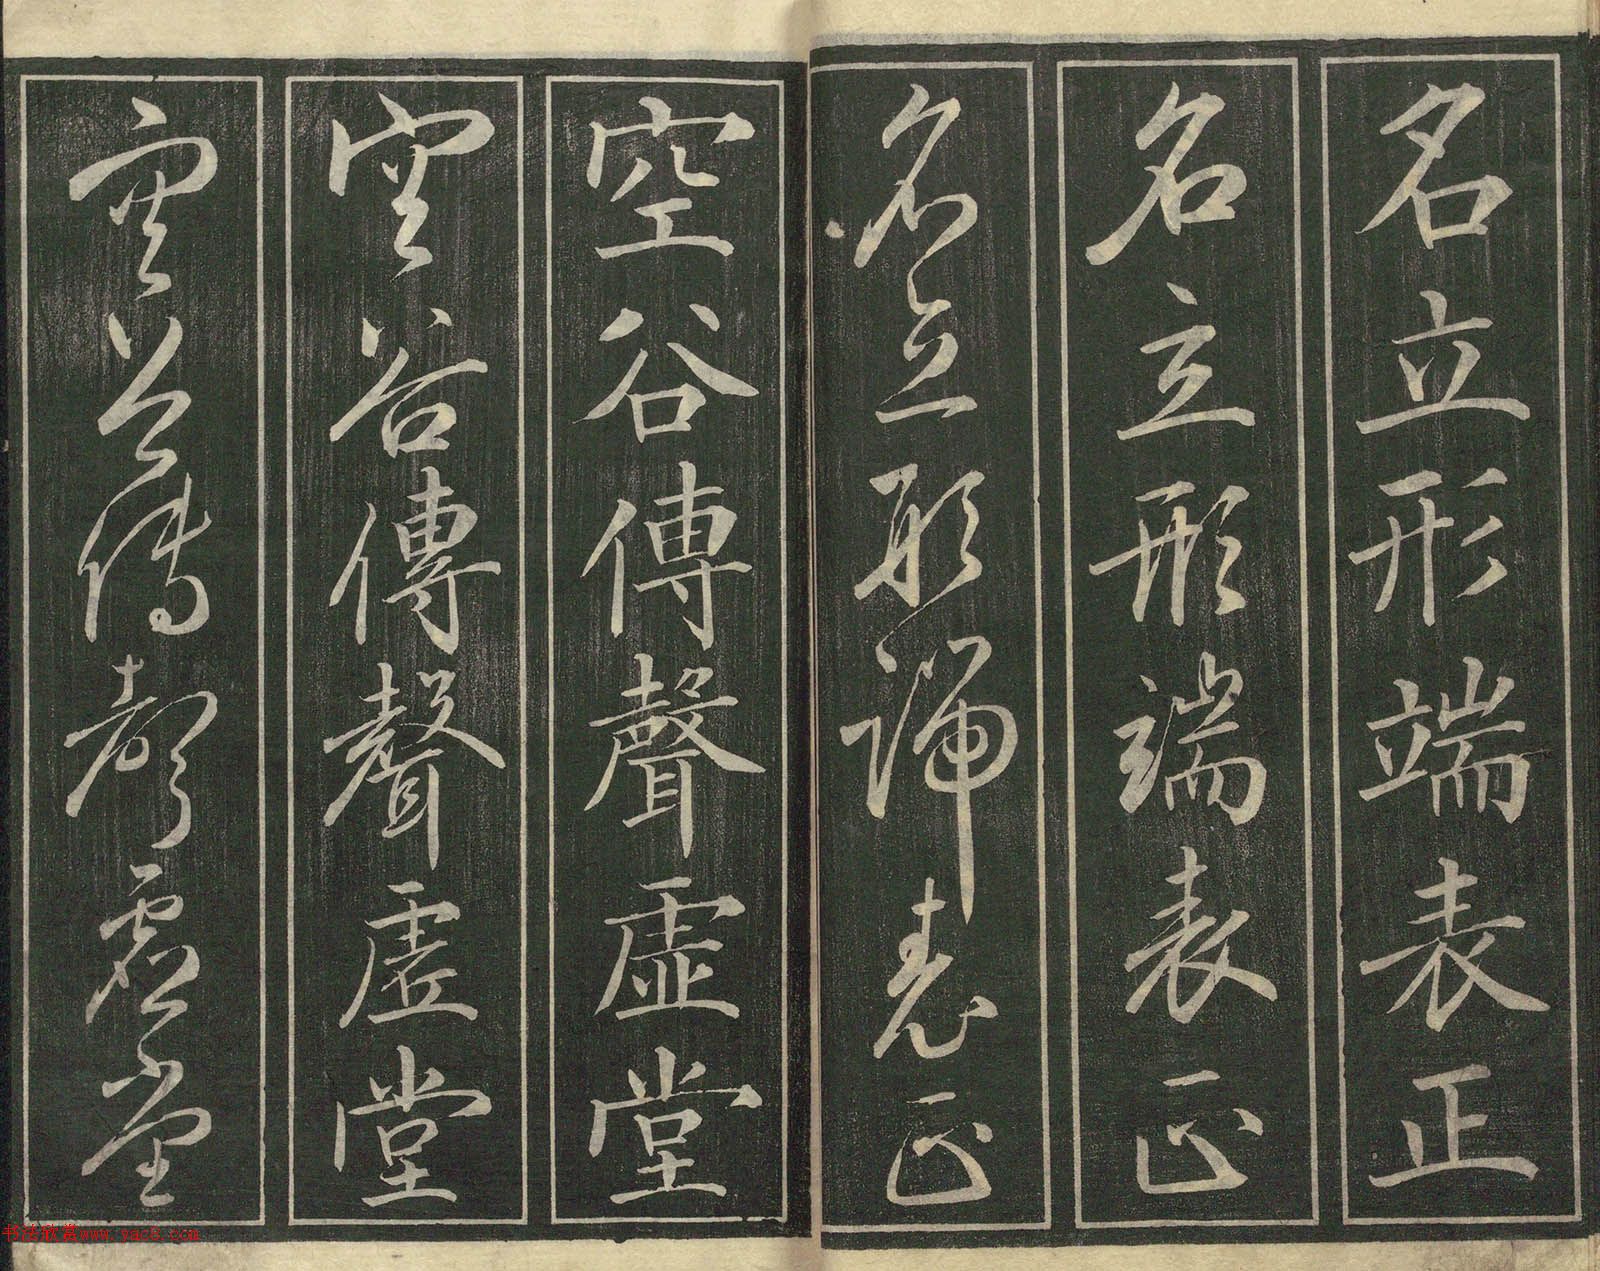 名立形端表正
名立形端表正
名立形端表正
空谷傳聲虛堂
空谷傳聲虛堂
空谷傳聲虛堂
书法欣赏www.yac8.com